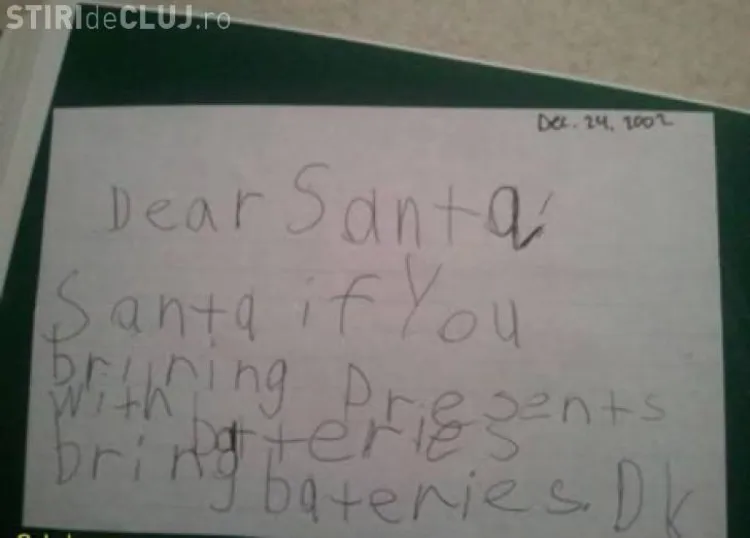 STIRIdeCLUJ.ro
Dec. 24, 2002
Dear Santa
Santa if You
brining Presents
with batteries
bring bateries. Dk